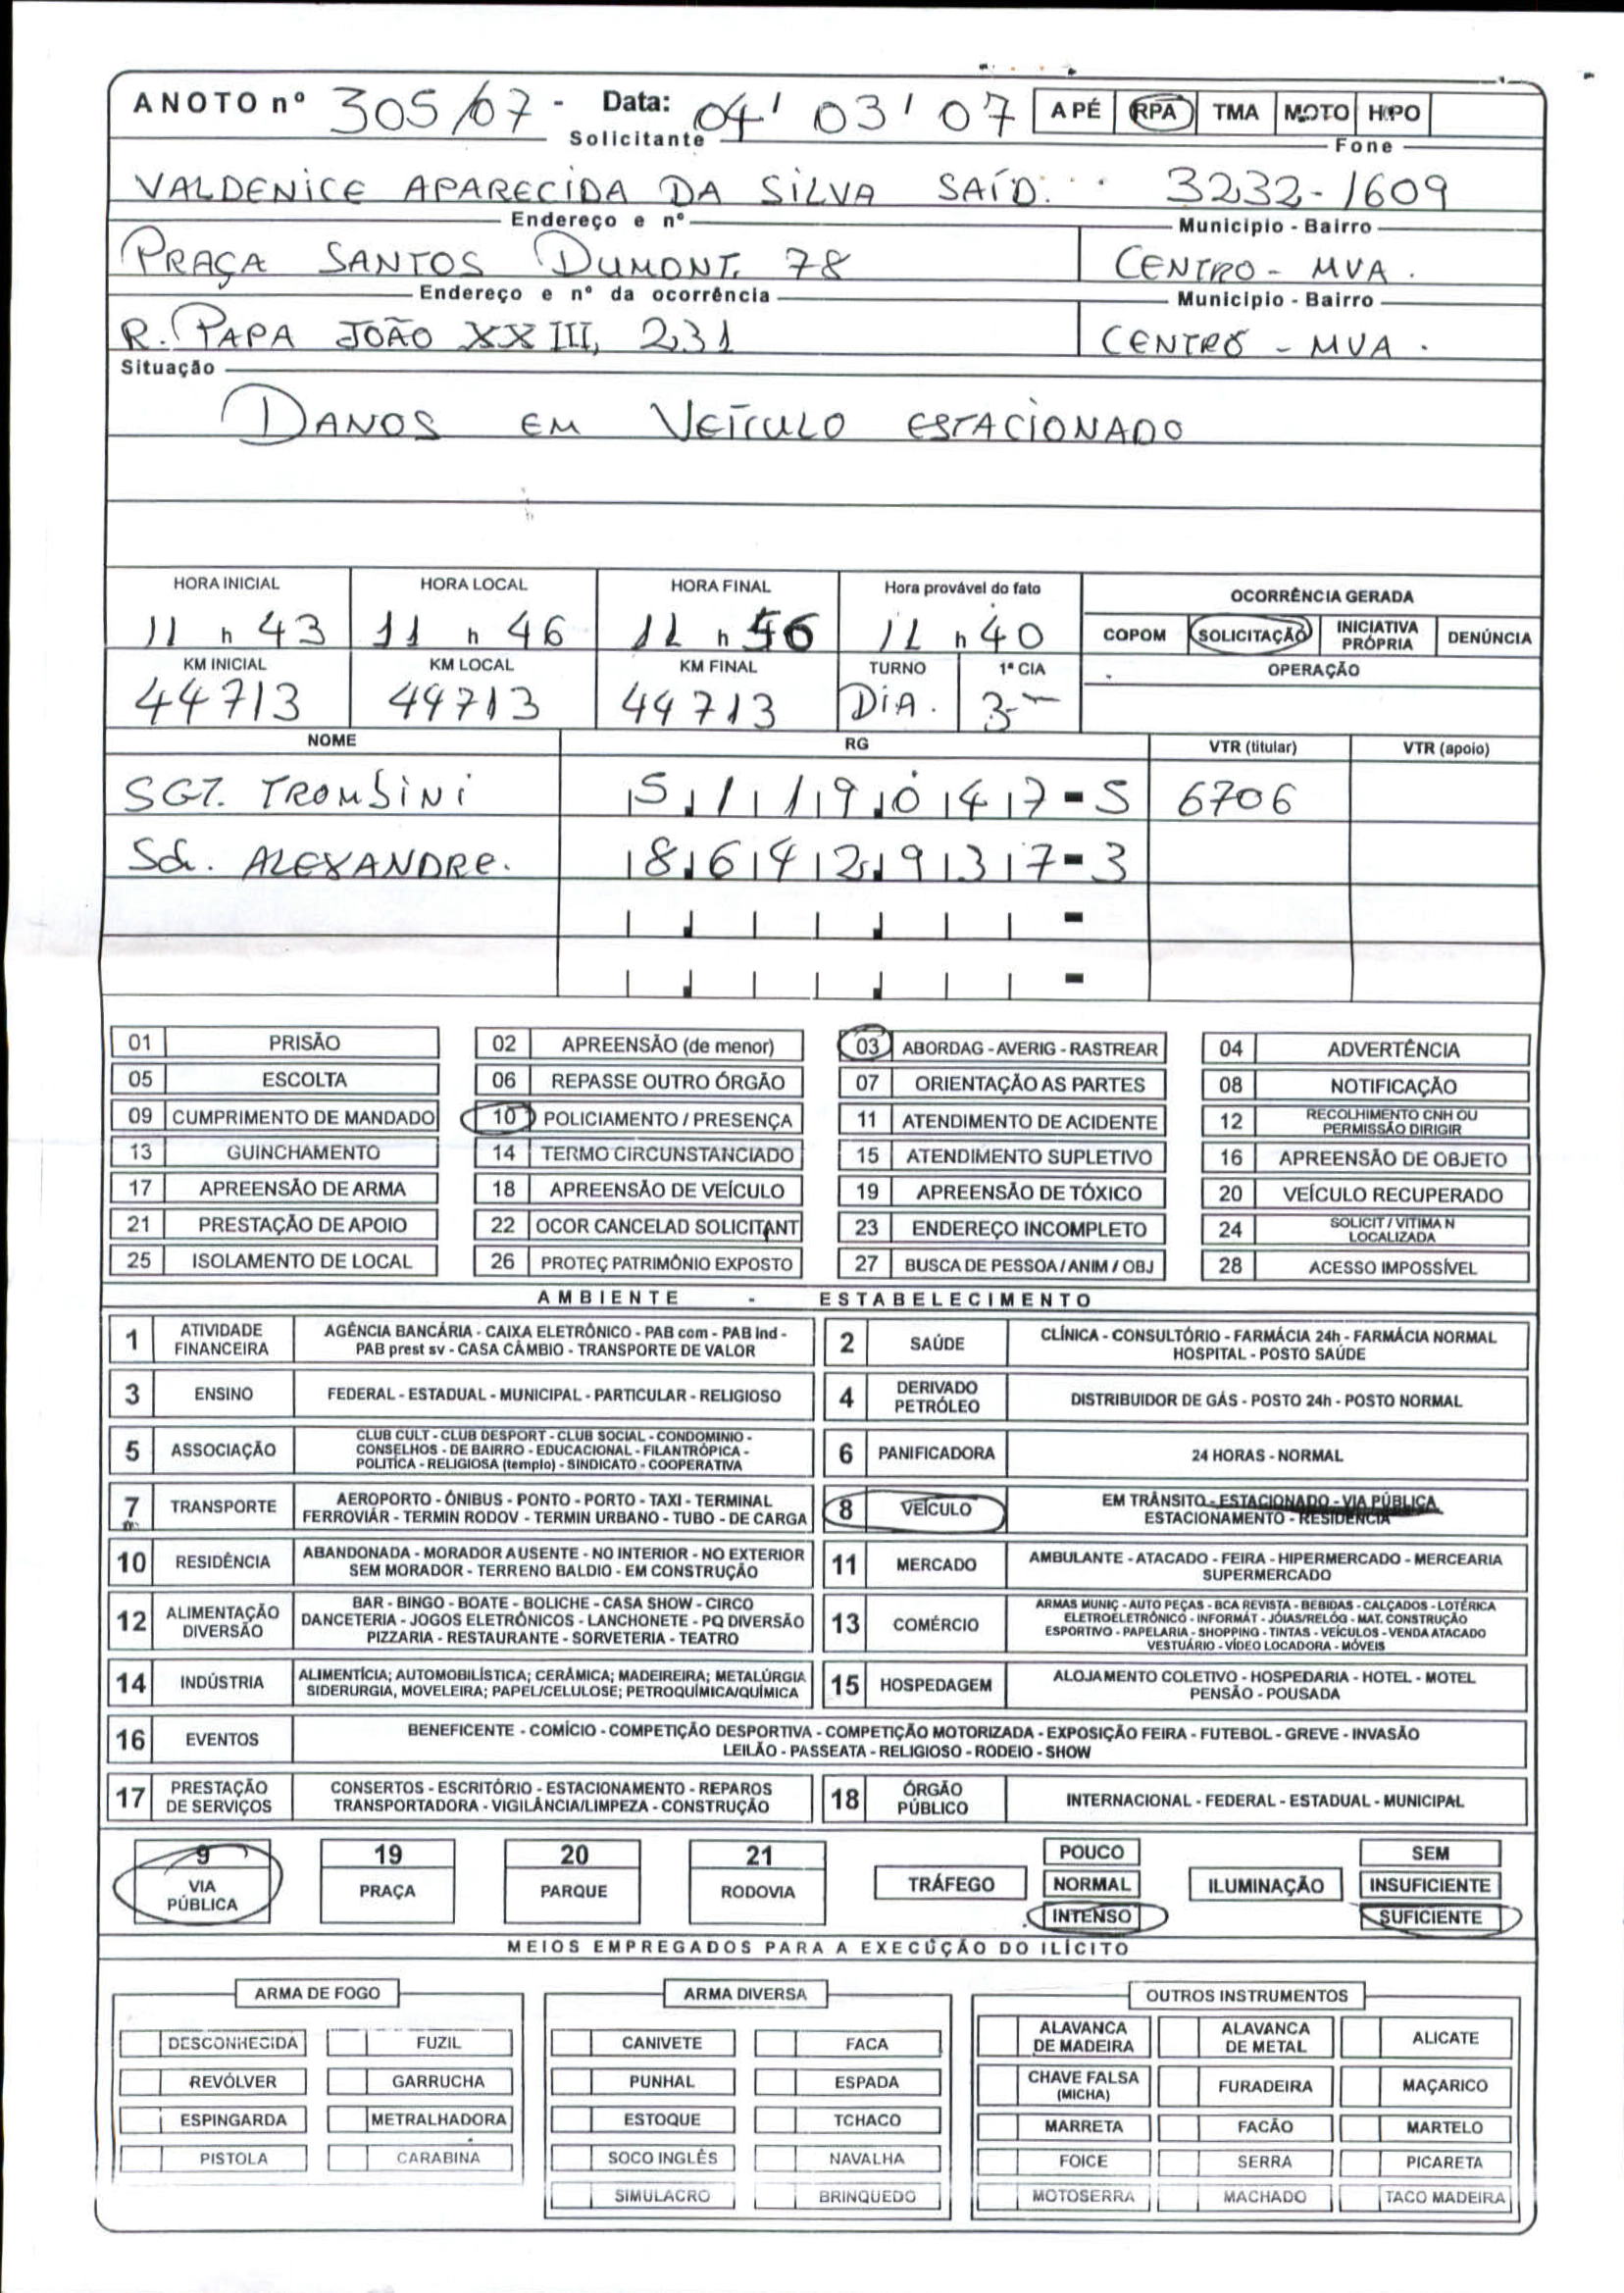 ANOTO nº 305/07 - Data: 04/03/07 A PÉ RPA TMA MOTO HIPO
Solicitante Fone
VALDENICE APARECIDA DA SILVA SAÍD. 3232-1609
Endereço e nº Municipio - Bairro
PRAÇA SANTOS DUMONT. 78 CENTRO - MVA.
Endereço e nº da ocorrência Municipio - Bairro
R. PAPA JOÃO XXIII, 231 CENTRO - MVA.
Situação
DANOS EM VEÍCULO ESTACIONADO
HORA INICIAL HORA LOCAL HORA FINAL Hora provável do fato OCORRÊNCIA GERADA
11 h 43 11 h 46 11 h 56 11 h 40 COPOM SOLICITAÇÃO INICIATIVA PRÓPRIA DENÚNCIA
KM INICIAL KM LOCAL KM FINAL TURNO 1ª CIA OPERAÇÃO
44713 44713 44713 DIA. 3
NOME RG VTR (titular) VTR (apoio)
SGT. TROMBINI 5.119.047-5 6706
Sd. ALEXANDRE. 8.642.937-3
01 PRISÃO 02 APREENSÃO (de menor) 03 ABORDAG - AVERIG - RASTREAR 04 ADVERTÊNCIA
05 ESCOLTA 06 REPASSE OUTRO ÓRGÃO 07 ORIENTAÇÃO AS PARTES 08 NOTIFICAÇÃO
09 CUMPRIMENTO DE MANDADO 10 POLICIAMENTO / PRESENÇA 11 ATENDIMENTO DE ACIDENTE 12 RECOLHIMENTO CNH OU PERMISSÃO DIRIGIR
13 GUINCHAMENTO 14 TERMO CIRCUNSTANCIADO 15 ATENDIMENTO SUPLETIVO 16 APREENSÃO DE OBJETO
17 APREENSÃO DE ARMA 18 APREENSÃO DE VEÍCULO 19 APREENSÃO DE TÓXICO 20 VEÍCULO RECUPERADO
21 PRESTAÇÃO DE APOIO 22 OCOR CANCELAD SOLICITANT 23 ENDEREÇO INCOMPLETO 24 SOLICIT / VITIMA N LOCALIZADA
25 ISOLAMENTO DE LOCAL 26 PROTEÇ PATRIMÔNIO EXPOSTO 27 BUSCA DE PESSOA / ANIM / OBJ 28 ACESSO IMPOSSÍVEL
AMBIENTE - ESTABELECIMENTO
1 ATIVIDADE FINANCEIRA AGÊNCIA BANCÁRIA - CAIXA ELETRÔNICO - PAB com - PAB Ind - PAB prest sv - CASA CÂMBIO - TRANSPORTE DE VALOR 2 SAÚDE CLÍNICA - CONSULTÓRIO - FARMÁCIA 24h - FARMÁCIA NORMAL HOSPITAL - POSTO SAÚDE
3 ENSINO FEDERAL - ESTADUAL - MUNICIPAL - PARTICULAR - RELIGIOSO 4 DERIVADO PETRÓLEO DISTRIBUIDOR DE GÁS - POSTO 24h - POSTO NORMAL
5 ASSOCIAÇÃO CLUB CULT - CLUB DESPORT - CLUB SOCIAL - CONDOMINIO - CONSELHOS - DE BAIRRO - EDUCACIONAL - FILANTRÓPICA - POLITÍCA - RELIGIOSA (templo) - SINDICATO - COOPERATIVA 6 PANIFICADORA 24 HORAS - NORMAL
7 TRANSPORTE AEROPORTO - ÔNIBUS - PONTO - PORTO - TAXI - TERMINAL FERROVIÁR - TERMIN RODOV - TERMIN URBANO - TUBO - DE CARGA 8 VEÍCULO EM TRÂNSITO - ESTACIONADO - VIA PÚBLICA ESTACIONAMENTO - RESIDÊNCIA
10 RESIDÊNCIA ABANDONADA - MORADOR AUSENTE - NO INTERIOR - NO EXTERIOR SEM MORADOR - TERRENO BALDIO - EM CONSTRUÇÃO 11 MERCADO AMBULANTE - ATACADO - FEIRA - HIPERMERCADO - MERCEARIA SUPERMERCADO
12 ALIMENTAÇÃO DIVERSÃO BAR - BINGO - BOATE - BOLICHE - CASA SHOW - CIRCO DANCETERIA - JOGOS ELETRÔNICOS - LANCHONETE - PQ DIVERSÃO PIZZARIA - RESTAURANTE - SORVETERIA - TEATRO 13 COMÉRCIO ARMAS MUNIÇ - AUTO PEÇAS - BCA REVISTA - BEBIDAS - CALÇADOS - LOTÉRICA ELETROELETRÔNICO - INFORMÁT - JÓIAS/RELÓG - MAT. CONSTRUÇÃO ESPORTIVO - PAPELARIA - SHOPPING - TINTAS - VEÍCULOS - VENDA ATACADO VESTUÁRIO - VÍDEO LOCADORA - MÓVEIS
14 INDÚSTRIA ALIMENTÍCIA; AUTOMOBILÍSTICA; CERÂMICA; MADEIREIRA; METALÚRGIA SIDERURGIA, MOVELEIRA; PAPEL/CELULOSE; PETROQUÍMICA/QUÍMICA 15 HOSPEDAGEM ALOJAMENTO COLETIVO - HOSPEDARIA - HOTEL - MOTEL PENSÃO - POUSADA
16 EVENTOS BENEFICENTE - COMÍCIO - COMPETIÇÃO DESPORTIVA - COMPETIÇÃO MOTORIZADA - EXPOSIÇÃO FEIRA - FUTEBOL - GREVE - INVASÃO LEILÃO - PASSEATA - RELIGIOSO - RODEIO - SHOW
17 PRESTAÇÃO DE SERVIÇOS CONSERTOS - ESCRITÓRIO - ESTACIONAMENTO - REPAROS TRANSPORTADORA - VIGILÂNCIA/LIMPEZA - CONSTRUÇÃO 18 ÓRGÃO PÚBLICO INTERNACIONAL - FEDERAL - ESTADUAL - MUNICIPAL
9 VIA PÚBLICA 19 PRAÇA 20 PARQUE 21 RODOVIA TRÁFEGO POUCO NORMAL INTENSO ILUMINAÇÃO SEM INSUFICIENTE SUFICIENTE
MEIOS EMPREGADOS PARA A EXECUÇÃO DO ILÍCITO
ARMA DE FOGO ARMA DIVERSA OUTROS INSTRUMENTOS
DESCONHECIDA FUZIL CANIVETE FACA ALAVANCA DE MADEIRA ALAVANCA DE METAL ALICATE
REVÓLVER GARRUCHA PUNHAL ESPADA CHAVE FALSA (MICHA) FURADEIRA MAÇARICO
ESPINGARDA METRALHADORA ESTOQUE TCHACO MARRETA FACÃO MARTELO
PISTOLA CARABINA SOCO INGLÊS NAVALHA FOICE SERRA PICARETA
SIMULACRO BRINQUEDO MOTOSERRA MACHADO TACO MADEIRA